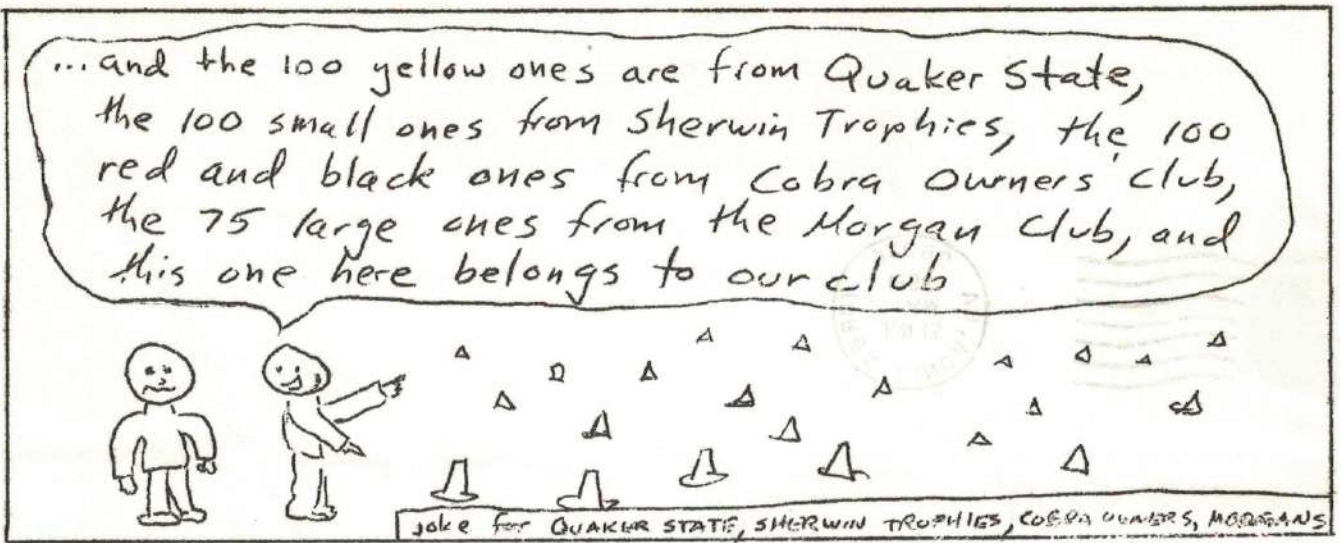 ...and the 100 yellow ones are from Quaker State,
the 100 small ones from Sherwin Trophies, the 100
red and black ones from Cobra Owners' Club,
the 75 large ones from the Morgan Club, and
this one here belongs to our club
joke for QUAKER STATE, SHERWIN TROPHIES, COBRA OWNERS, MORGANS